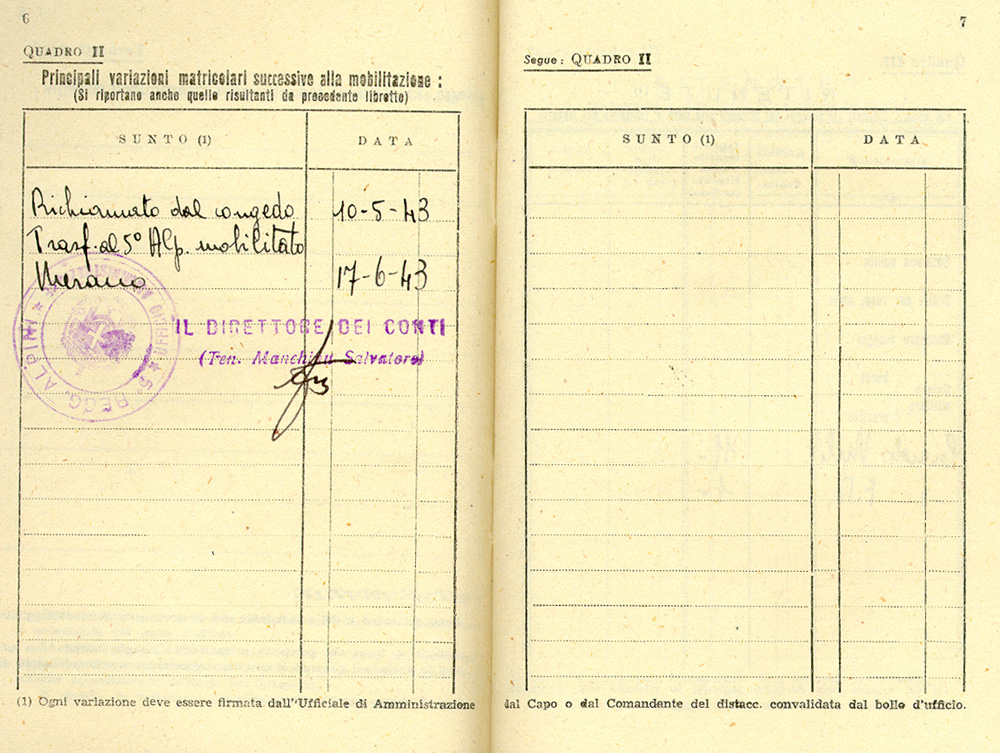 6
QUADRO II
Principali variazioni matricolari successive alla mobilitazione :
(Si riportano anche quelle risultanti da precedente libretto)
SUNTO (1) DATA
Richiamato dal congedo 10-5-43
Trasf. al 5° Alp. mobilitato
Merano 17-6-43
IL DIRETTORE DEI CONTI
(Ten. Salvatore)
5° REGG. ALPINI
UFFICIO
(1) Ogni variazione deve essere firmata dall'Ufficiale di Amministrazione
7
Segue: QUADRO II
SUNTO (1) DATA
dal Capo o dal Comandante del distacc. convalidata dal bollo d'ufficio.